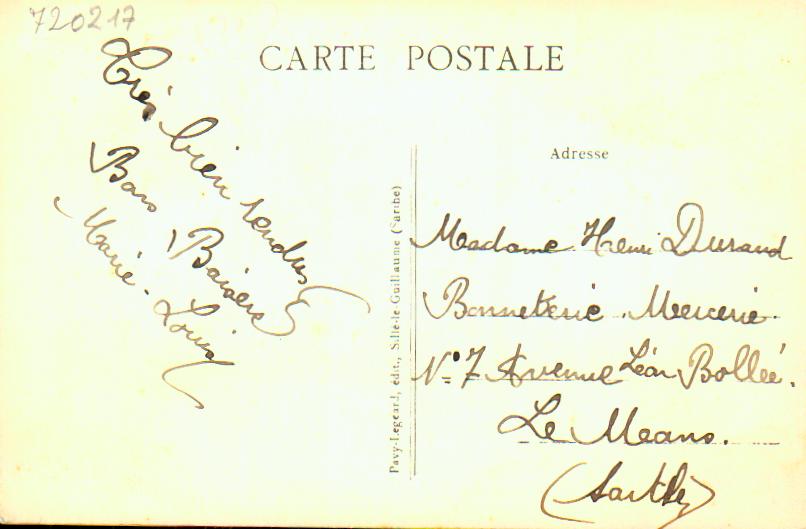 720217
CARTE POSTALE
Très bien rendus
Bons Baisers
Marie-Louise
Pavy-Legeard, édit., Sillé-le-Guillaume (Sarthe)
Adresse
Madame Henri Durand
Bonneterie. Mercerie.
N° 7 Avenue Léon Bollée.
Le Mans.
(Sarthe)